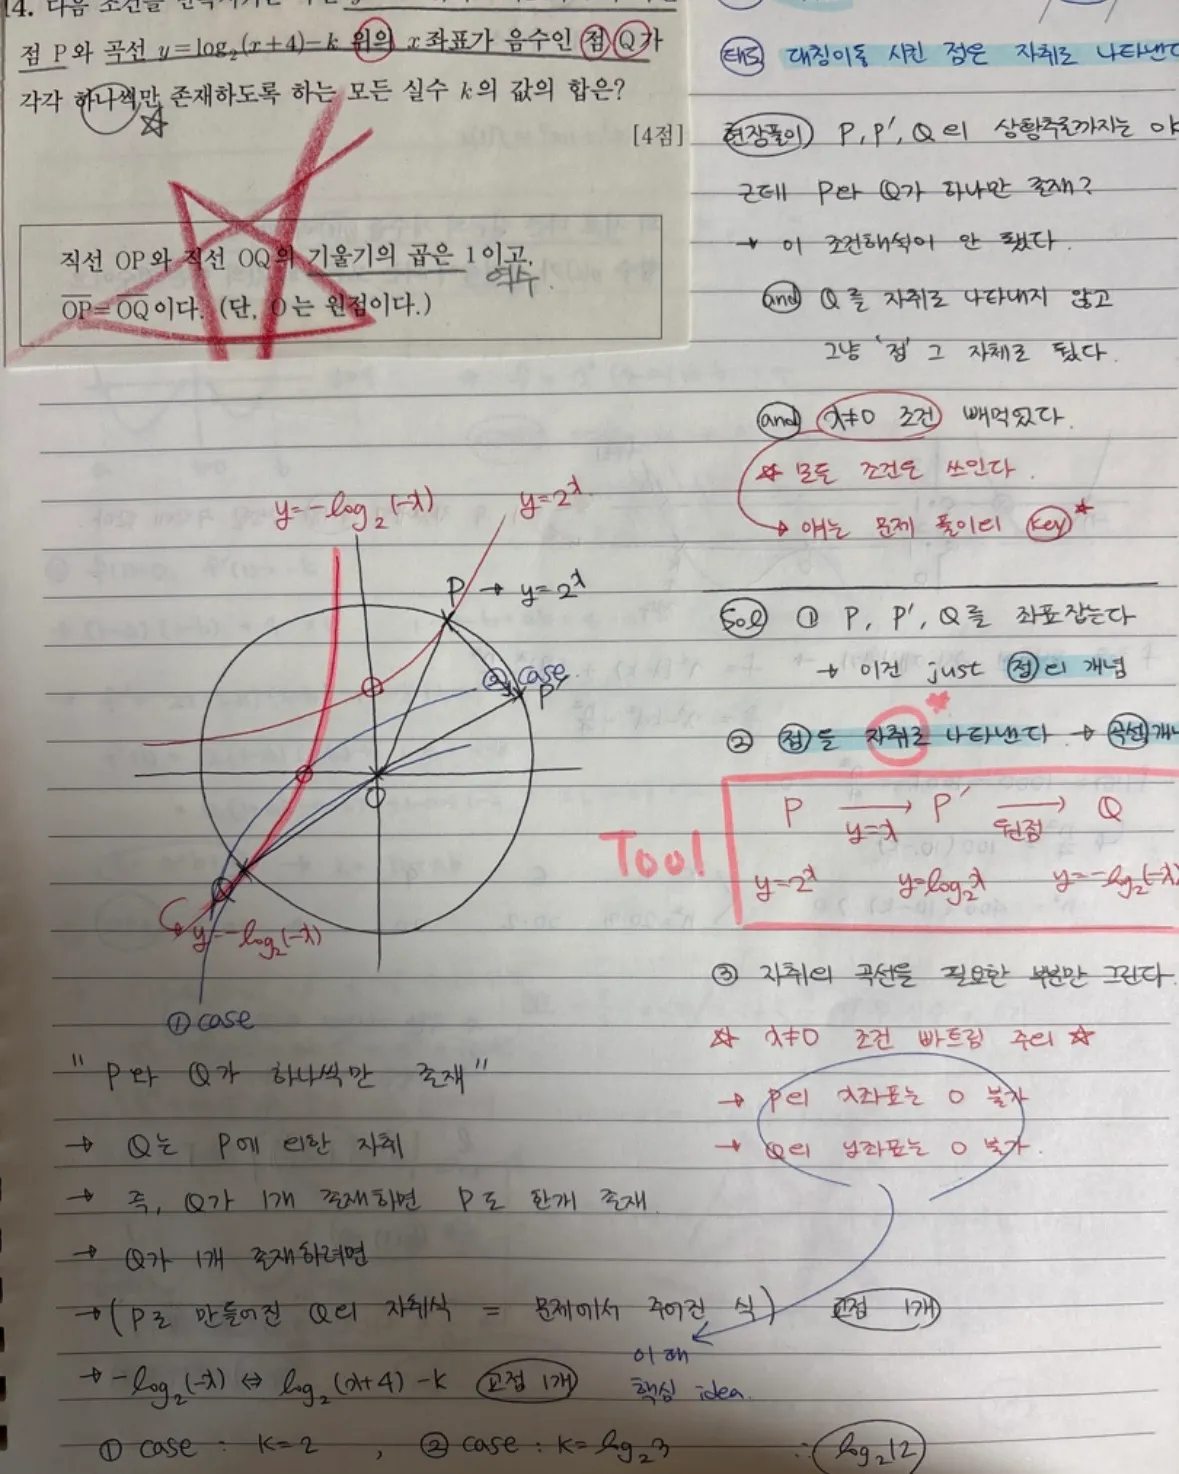 점 P와 곡선 y=log₂(x+4)-k 위의 x좌표가 음수인 점 Q가
각각 하나씩만 존재하도록 하는 모든 실수 k의 값의 합은?
☆
[4점]
직선 OP와 직선 OQ의 기울기의 곱은 1이고,
역수
OP=OQ이다. (단, O는 원점이다.)
태도 대칭이동 시킨 점은 자취로 나타낸다
현장풀이) P, P', Q의 상황추론까지는
근데 P와 Q가 하나만 존재?
→ 이 조건해석이 안 됐다.
and Q를 자취로 나타내지 않고
그냥 '점' 그 자체로 뒀다.
and x≠0 조건 빼먹었다.
☆ 모든 조건은 쓰인다.
→ 얘는 문제 풀이의 key☆
y=-log₂(-x)
y=2ˣ
P → y=2ˣ
② case
P'
O
Q
y=-log₂(-x)
① case
Sol ① P, P', Q를 좌표잡는다
→ 이건 just 점의 개념
② 점들 자취로 나타낸다 → 곡선
Tool
P → P' → Q
y=x 원점
y=2ˣ y=log₂x y=-log₂(-x)
③ 자취의 곡선을 필요한 부분만 그린다.
☆ x≠0 조건 빠트림 주의 ☆
→ P의 x좌표는 0 불가
→ Q의 y좌표는 0 불가.
" P와 Q가 하나씩만 존재 "
→ Q는 P에 의한 자취
→ 즉, Q가 1개 존재하면 P도 한개 존재.
→ Q가 1개 존재하려면
→ (P로 만들어진 Q의 자취식 = 문제에서 주어진 식) 교점 1개
이해
핵심 idea.
→ -log₂(-x) ⇔ log₂(x+4) -k 교점 1개
① case : k=2 , ② case : k=log₂3 ∴ log₂12